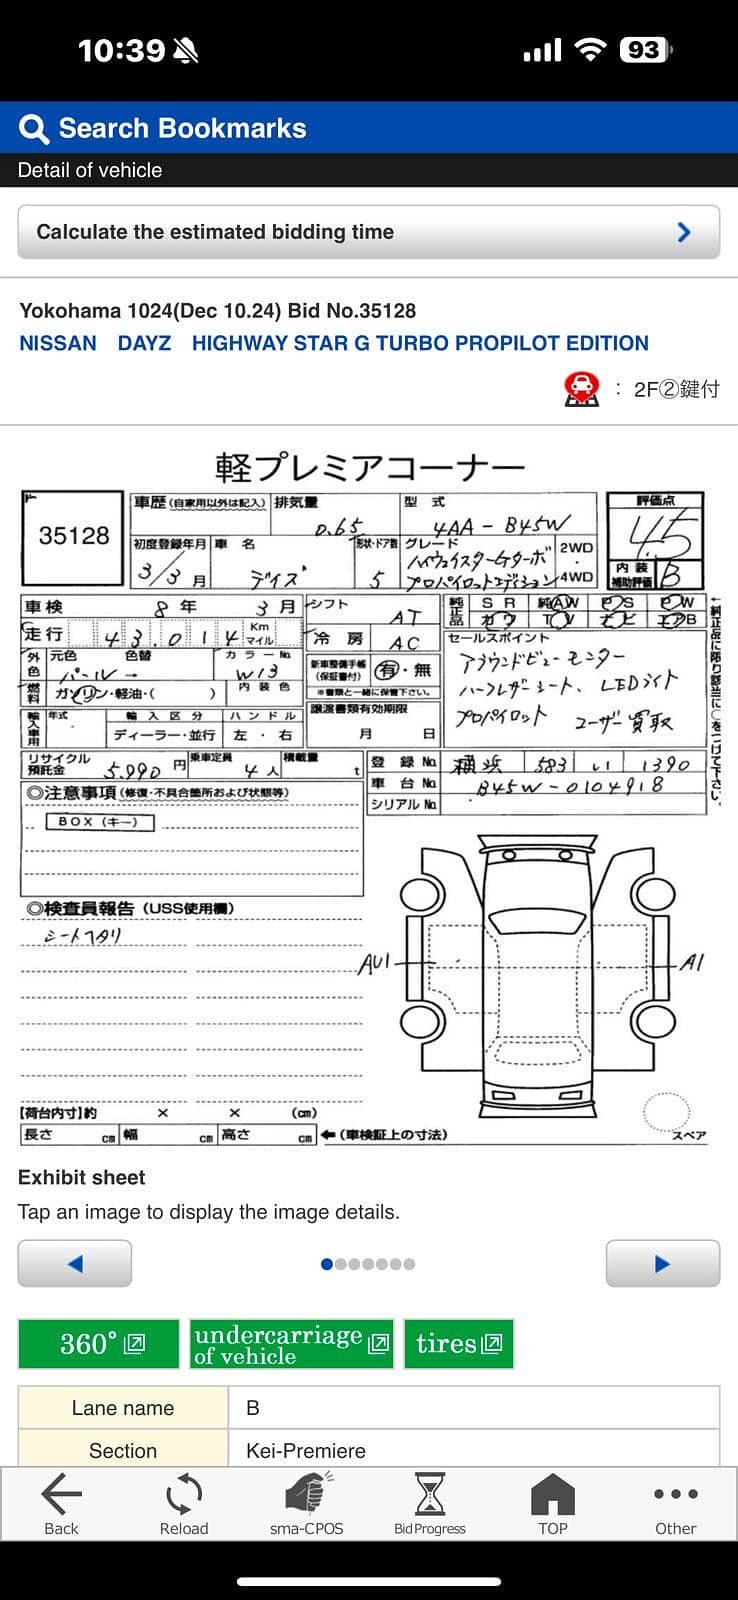 10:39
93
Search Bookmarks
Detail of vehicle
Calculate the estimated bidding time
Yokohama 1024(Dec 10.24) Bid No.35128
NISSAN DAYZ HIGHWAY STAR G TURBO PROPILOT EDITION
: 2F②鍵付
軽プレミアコーナー
35128
車歴(自家用以外は記入) 排気量 型 式 評価点
0.65 4AA-B45W 4.5
初度登録年月 車 名 形状・ドア数 グレード 2WD
3/3月 デイズ 5 ハイウェイスターGターボ
プロパイロットエディション 4WD
内装補助評価 B
車検 8年 3月 シフト AT
純正品 SR 純AW PS PW
カワ TV ナビ エアB
走行 43,014 Km マイル 冷房 AC
セールスポイント
アラウンドビューモニター
ハーフレザーシート、LEDライト
プロパイロット ユーザー買取
外色 元色 色替 カラーNo.
パール→ W13
新車整備手帳(保証書付) 有・無
※書類と一緒に保管下さい。
燃料 ガソリン・軽油・( ) 内装色
譲渡書類有効期限
月 日
輸入車用 年式 輸入区分 ハンドル
ディーラー・並行 左・右
←純正品に限り該当に○をつけて下さい。
リサイクル預託金 5,990円 乗車定員 4人 積載量 t
登録No. 横浜 583 い 1390
車台No. B45W-0104918
シリアルNo.
◎注意事項(修復・不具合箇所および状態等)
BOX(キー)
◎検査員報告(USS使用欄)
シートヘタリ
AU1
A1
【荷台内寸】約 × × (cm)
長さ cm 幅 cm 高さ cm ←(車検証上の寸法)
スペア
Exhibit sheet
Tap an image to display the image details.
360°
undercarriage
of vehicle
tires
Lane name B
Section Kei-Premiere
Back Reload sma-CPOS BidProgress TOP Other